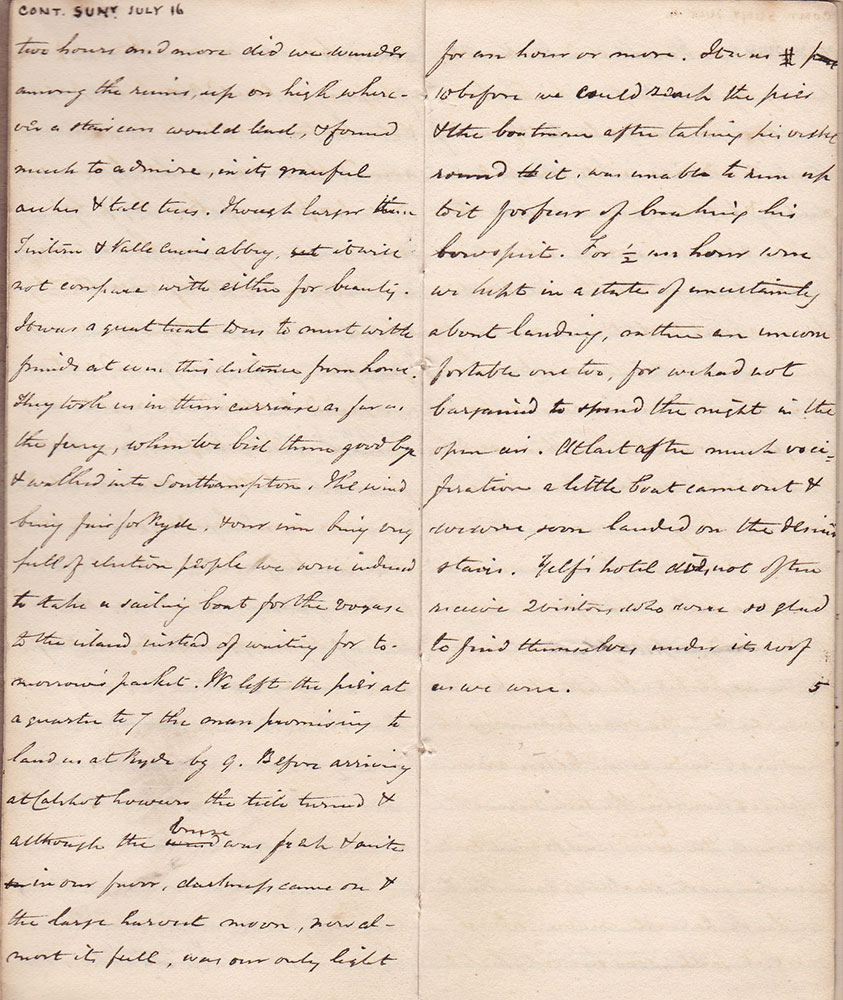 CONT. SUNY. JULY 16
two hours and more did we wander
among the ruins, up on high where-
ver a staircase would lead, & found
much to admire, in its graceful
arches & tall trees. Though larger than
Tintern & Valle Crucis abbey, yet it will
not compare with either for beauty.
It was a great treat to us to meet with
friends at even this distance from home.
They took us in their carriage as far as
the ferry, when we bid them good bye
& walked into Southampton. The wind
being fair for Ryde, & our inn being very
full of election people we were induced
to take a sailing boat for the voyage
to the island instead of waiting for to-
morrow's packet. We left the pier at
a quarter to 7 the man promising to
land us at Ryde by 9. Before arriving
at Calshot however the tide turned &
although the wind breeze was fresh & quite
in our favor, darkness came on &
the large harvest moon, now al-
most its full, was our only light
for an hour or more. It was
10 before we could reach the pier
& the boatman after taking his vessel
round it, was unable to run up
to it for fear of breaking his
bowsprit. For ½ an hour were
we kept in a state of uncertainty
about landing, rather an uncom
fortable one too, for we had not
bargained to spend the night in the
open air. At last after much voci=
feration a little boat came out &
we were soon landed on the desired
stairs. Yelf's hotel did not often
receive 2 visitors who were so glad
to find themselves under its roof
as we were. 5